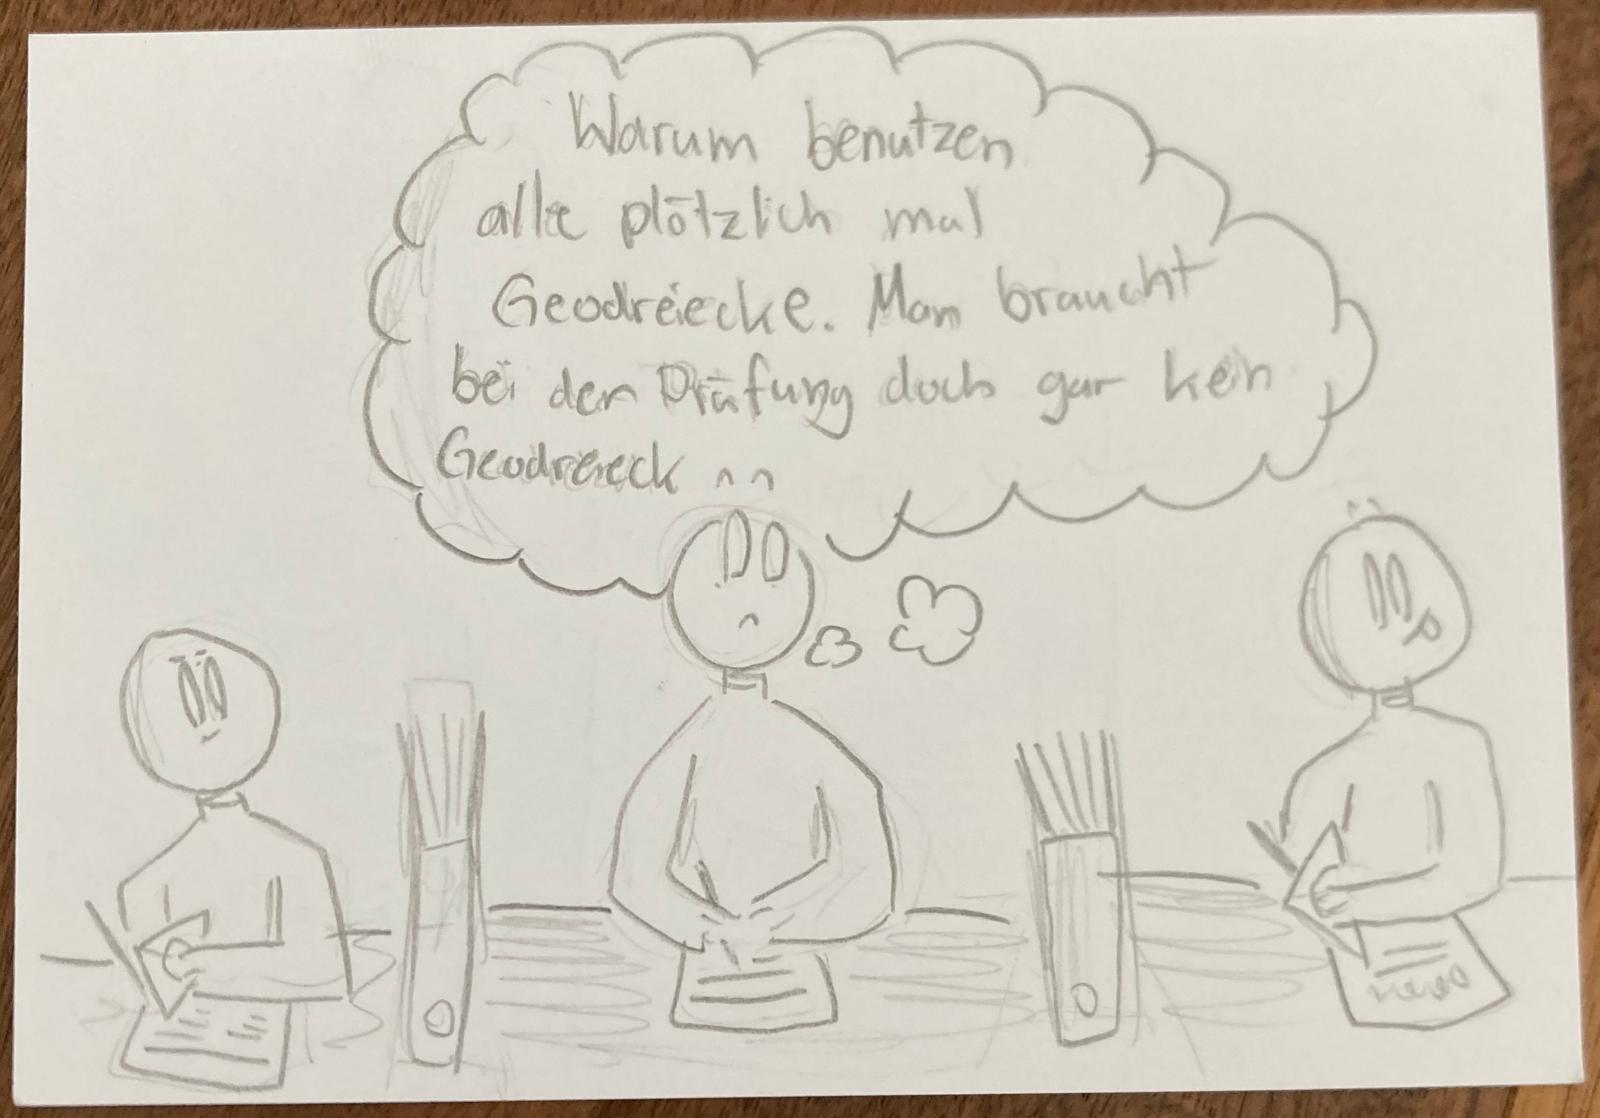 Warum benutzen
alle plötzlich mal
Geodreiecke. Man braucht
bei der Prüfung doch gar kein
Geodreieck ^^